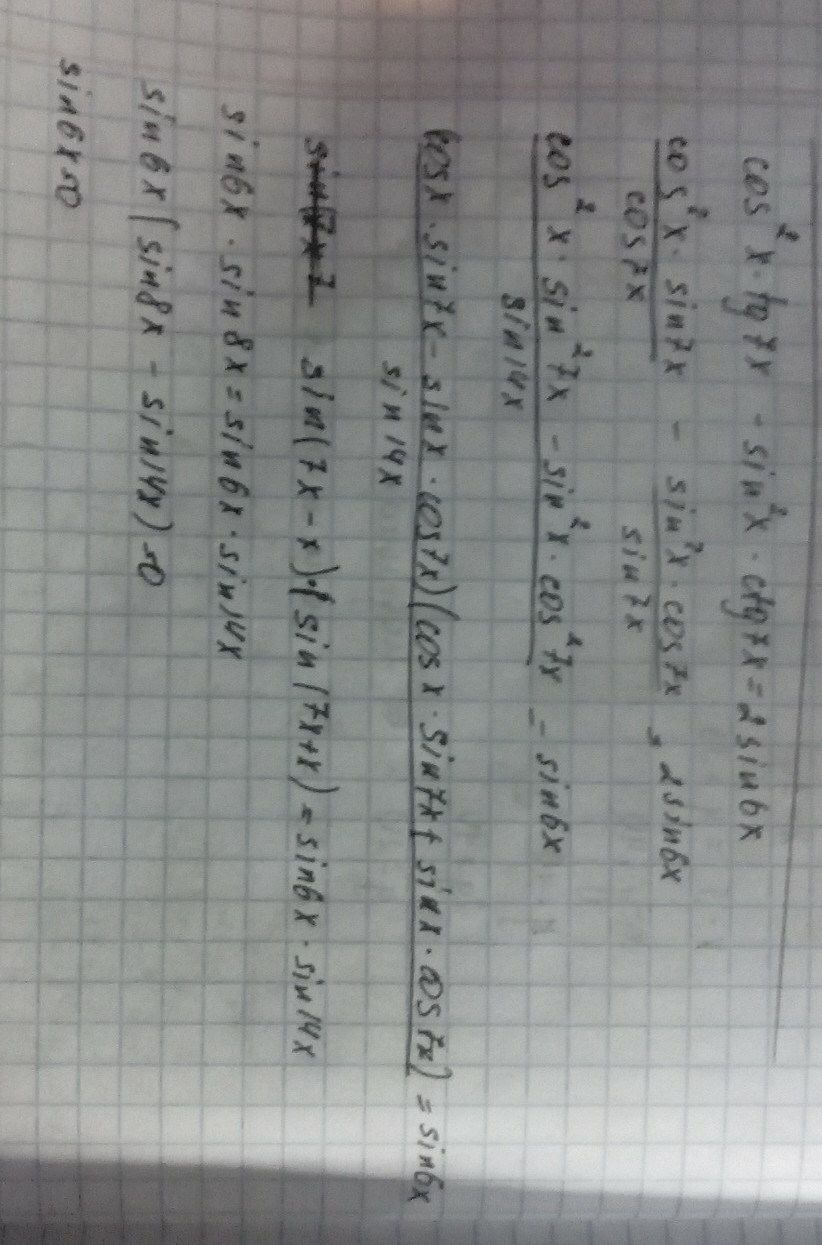 cos²x · tg7x - sin²x · ctg7x = 2sin6x
cos²x · sin7x - sin²x · cos7x = 2sin6x
cos7x sin7x
cos²x · sin²7x - sin²x · cos²7x = sin6x
sin14x
cosx · sin7x - sinx · cos7x)(cosx · sin7x + sinx · cos7x) = sin6x
sin14x
sin(7x - x) · (sin(7x+x) = sin6x · sin14x
sin6x · sin8x = sin6x · sin14x
sin6x(sin8x - sin14x) = 0
sin6x=0